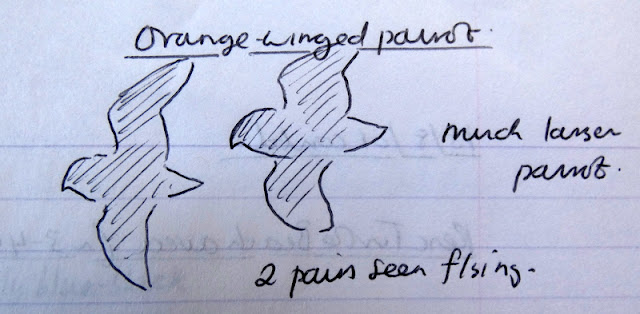 Orange-winged parrot.
much larger
parrot.
2 pairs seen flying.